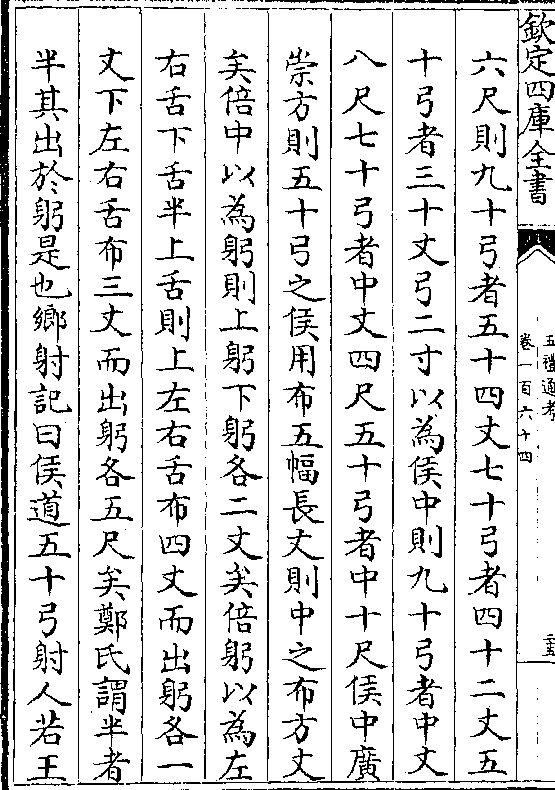 欽定四庫全書
五禮通考
卷一百六十四
三五
六尺則九十弓者五十四丈七十弓者四十二丈五
十弓者三十丈弓二寸以為侯中則九十弓者中丈
八尺七十弓者中丈四尺五十弓者中十尺侯中廣
崇方則五十弓之侯用布五幅長丈則中之布方丈
矣倍中以為躬則上躬下躬各二丈矣倍躬以為左
右舌下舌半上舌則上左右舌布四丈而出躬各一
丈下左右舌布三丈而出躬各五尺矣鄭氏謂半者
半其出於躬是也鄉射記曰侯道五十弓射人若王